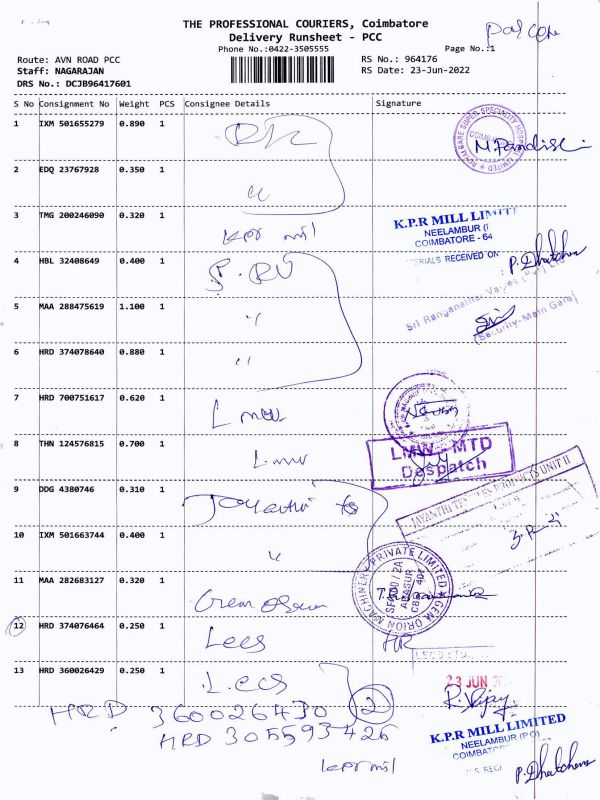 THE PROFESSIONAL COURIERS, Coimbatore
Delivery Runsheet - PCC
Phone No.:0422-3505555
Page No.:1
Route: AVN ROAD PCC
RS No.: 964176
Staff: NAGARAJAN
RS Date: 23-Jun-2022
DRS No.: DCJB96417601
S No Consignment No Weight PCS Consignee Details Signature
1 IXM 501655279 0.890 1
ROYALCARE SUPER SPECIALITY HOSPITAL LIMITED
M. Pandi
2 EDQ 23767928 0.350 1 "
3 TMG 200246090 0.320 1 kpr mil
K.P.R MILL LIMIT
NEELAMBUR (
COIMBATORE - 64
RIALS RECEIVED ON
4 HBL 32408649 0.400 1
Sri Ranganathar Valves
(Security-Main Gate)
5 MAA 288475619 1.100 1 "
6 HRD 374078640 0.880 1 "
7 HRD 700751617 0.620 1 Lmw
8 THN 124576815 0.700 1 Lmw
LMW - MTD
Despatch
9 DDG 4380746 0.310 1
JAYANTHI
PRODUCTS UNIT II
10 IXM 501663744 0.400 1 "
11 MAA 282683127 0.320 1 Gem
GEM ORION MACHINERY PRIVATE LIMITED
12 HRD 374076464 0.250 1 Lecs
13 HRD 360026429 0.250 1 Lecs
23 JUN
R. Vijay
HRD 360026430 2
HRD 305593426
kpr mil
K.P.R MILL LIMITED
NEELAMBUR (PO)
COIMBATO